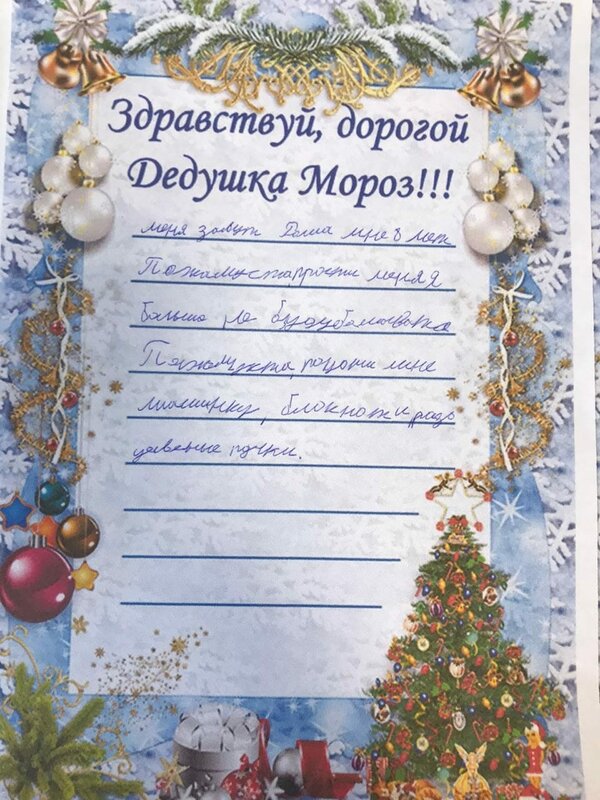 Здравствуй, дорогой
Дедушка Мороз!!!
меня завут Даша мне 8 лет
Пожалуста прости меня я
больше не буду баловатся
Пожалужста, подари мне
машинку, блокнот и разо
цвеные ручки.